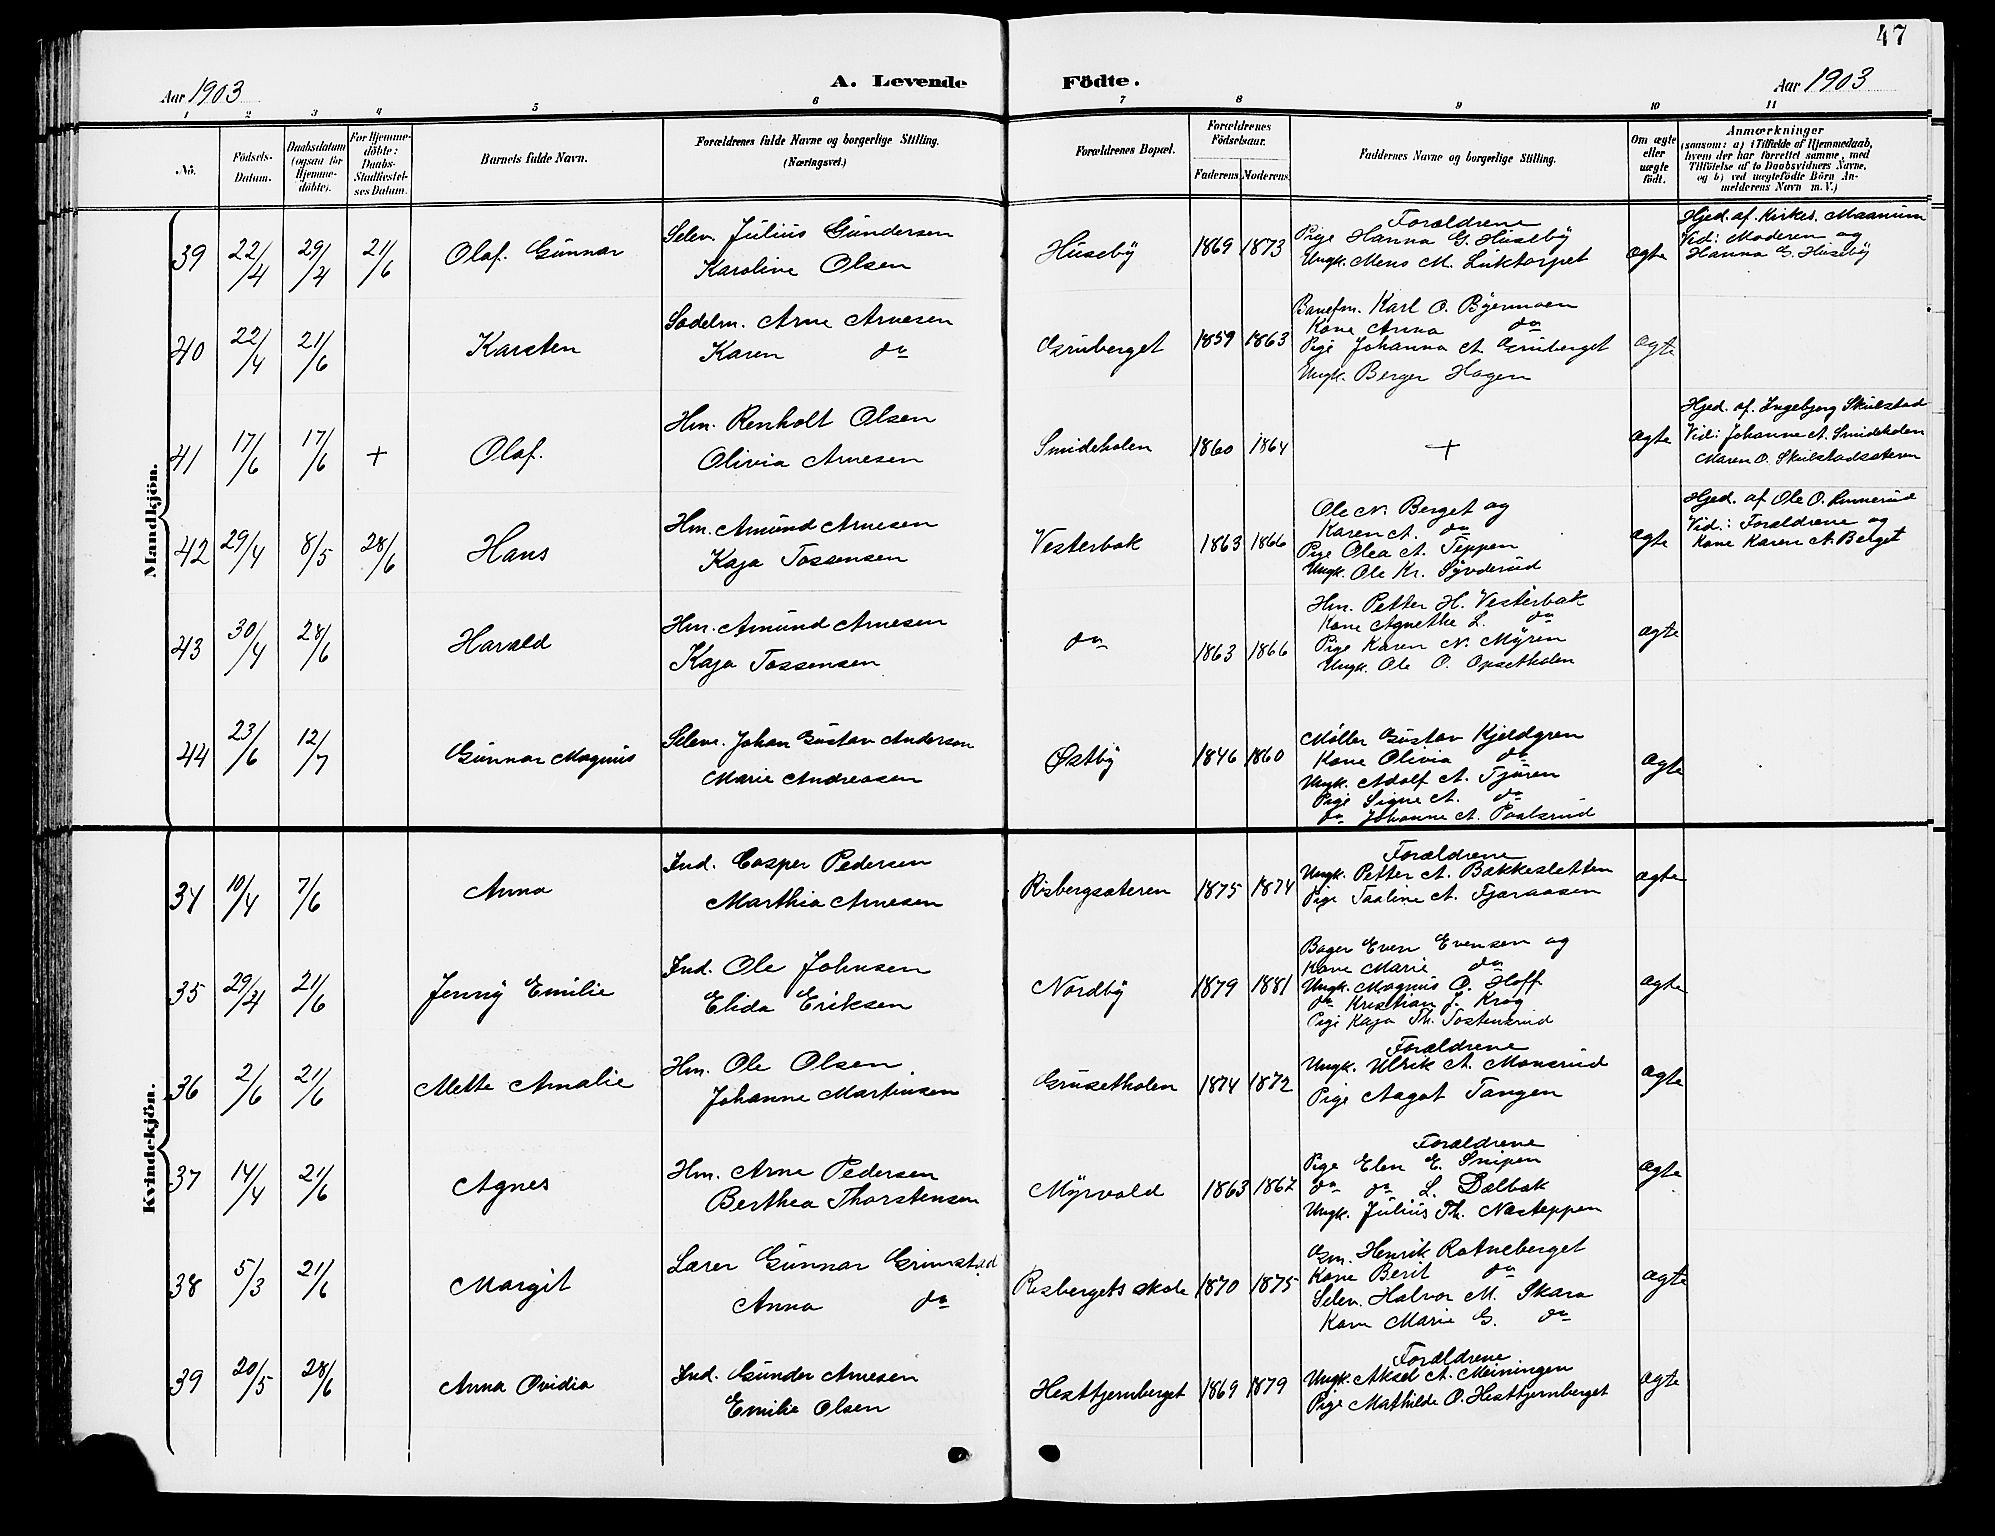 47
Aar 1903
A. Levende
Födte.
Aar 1903
1 2 3 4 5 6 7 8 9 10 11
No.
Födsels-Datum.
Daabsdatum (ogsaa for Hjemme-döbte).
For Hjemme-döbte: Daabs-Stadfæstel-ses Datum.
Barnets fulde Navn.
Forældrenes fulde Navne og borgerlige Stilling.
(Næringsvei.)
Forældrenes Bopæl.
Forældrenes Födselsaar.
Faderens Moderens
Faddernes Navne og borgerlige Stilling.
Om ægte eller uægte födt.
Anmærkninger
(saasom: a) i Tilfælde af Hjemmedaab,
hvem der har forrettet samme, med
Tilföielse af to Daabsvidners Navne,
og b) ved uægtefödte Börn An-
melderens Navn m. V.)
Mandkjön.
39 22/4 29/4 21/6 Olaf Gunnar
Selev. Julius Gundersen
Karoline Olsen
Huseby 1869 1873
Forældrene
Pige Hanna G. Huseby
Ungk. Mens M. Luktorpet
ægte
Hjed. af Kirkes. Maanum
Vid: Moderen og
Hanna G. Huseby
40 22/4 21/6 Karsten
Sadelm. Arne Arnesen
Karen do
Gruberget 1859 1863
Banefm. Karl O. Bjermoen
Kone Anna do
Pige Johanna A. Gruberget
Ungk. Berger Hagen
ægte
41 17/6 17/6 + Olaf.
Hm. Renholt Olsen
Olivia Arnesen
Smideholen 1860 1864
+
ægte
Hjed. af. Ingebjerg Skulstad
Vid: Johanne A. Smideholen
Maren O. Skulstadsæteren
42 29/4 8/5 28/6 Hans
Hm. Amund Arnesen
Kaja Tossensen
Vesterbak 1863 1866
Ole N. Berget og
Karen A. do
Pige Olea A. Teppen
Ungk. Ole Kr. Syverud
ægte
Hjed. af Ole O. Rinnerud
Vid.: Forældrene og
Kone Karen A. Berget
43 30/4 28/6 Harald
Hm. Amund Arnesen
Kaja Tossensen
do 1863 1866
Hm. Petter H. Vesterbak
Kone Agnethe L. do
Pige Karen N. Myren
Ungk. Ole O. Opsetholen
ægte
44 23/6 12/7 Gunnar Magnus
Seleve. Johan Gustav Anderson
Marie Andreasen
Østby 1846 1860
Møller Gustav Kjeldgren
Kone Olivia do
Ungk. Adolf A. Tjüren
Pige Signe A. do
do Johanne A. Paalsrud
ægte
Kvindekjön.
34 10/4 7/6 Anna
Ind. Casper Pedersen
Marthia Arnesen
Risbergsæteren 1875 1874
Forældrene
Ungk. Petter A. Bakkesletten
Pige Taaline A. Fjæraasen
ægte
35 29/4 21/6 Jenny Emilie
Ind. Ole Johnsen
Elida Eriksen
Nordby 1879 1881
Bager Even Evensen og
Kone Marie do
Ungk. Magnus O. Hoff
do Kristian J. Krog
Pige Kaja Th. Tostensrud
ægte
36 2/6 21/6 Mette Amalie
Hm. Ole Olsen
Johanne Martinsen
Grusetholen 1874 1872
Forældrene
Ungk. Ulrik A. Monsrud
Pige Aagot Tangen
ægte
37 14/4 21/6 Agnes
Hm. Arne Pedersen
Berthea Thorstensen
Myrvold 1863 1867
Forældrene
Pige Elen E. Snipen
do do L. Dælbak
Ungk. Julius Th. Næsteppen
ægte
38 5/3 21/6 Margit
Lærer Gunnar Grimstad
Anna do
Risbergets skole 1870 1875
Gm. Henrik Rotneberget
Kone Berit do
Selev. Halvor M. Skara
Kone Marie G. do
ægte
39 20/5 28/6 Anna Ovidia
Ind. Gunder Arnesen
Emilie Olsen
Hestfjernberget 1869 1879
Forældrene
Ungk. Aksel A. Meiningen
Pige Mathilde O. Hestfjernberget
ægte